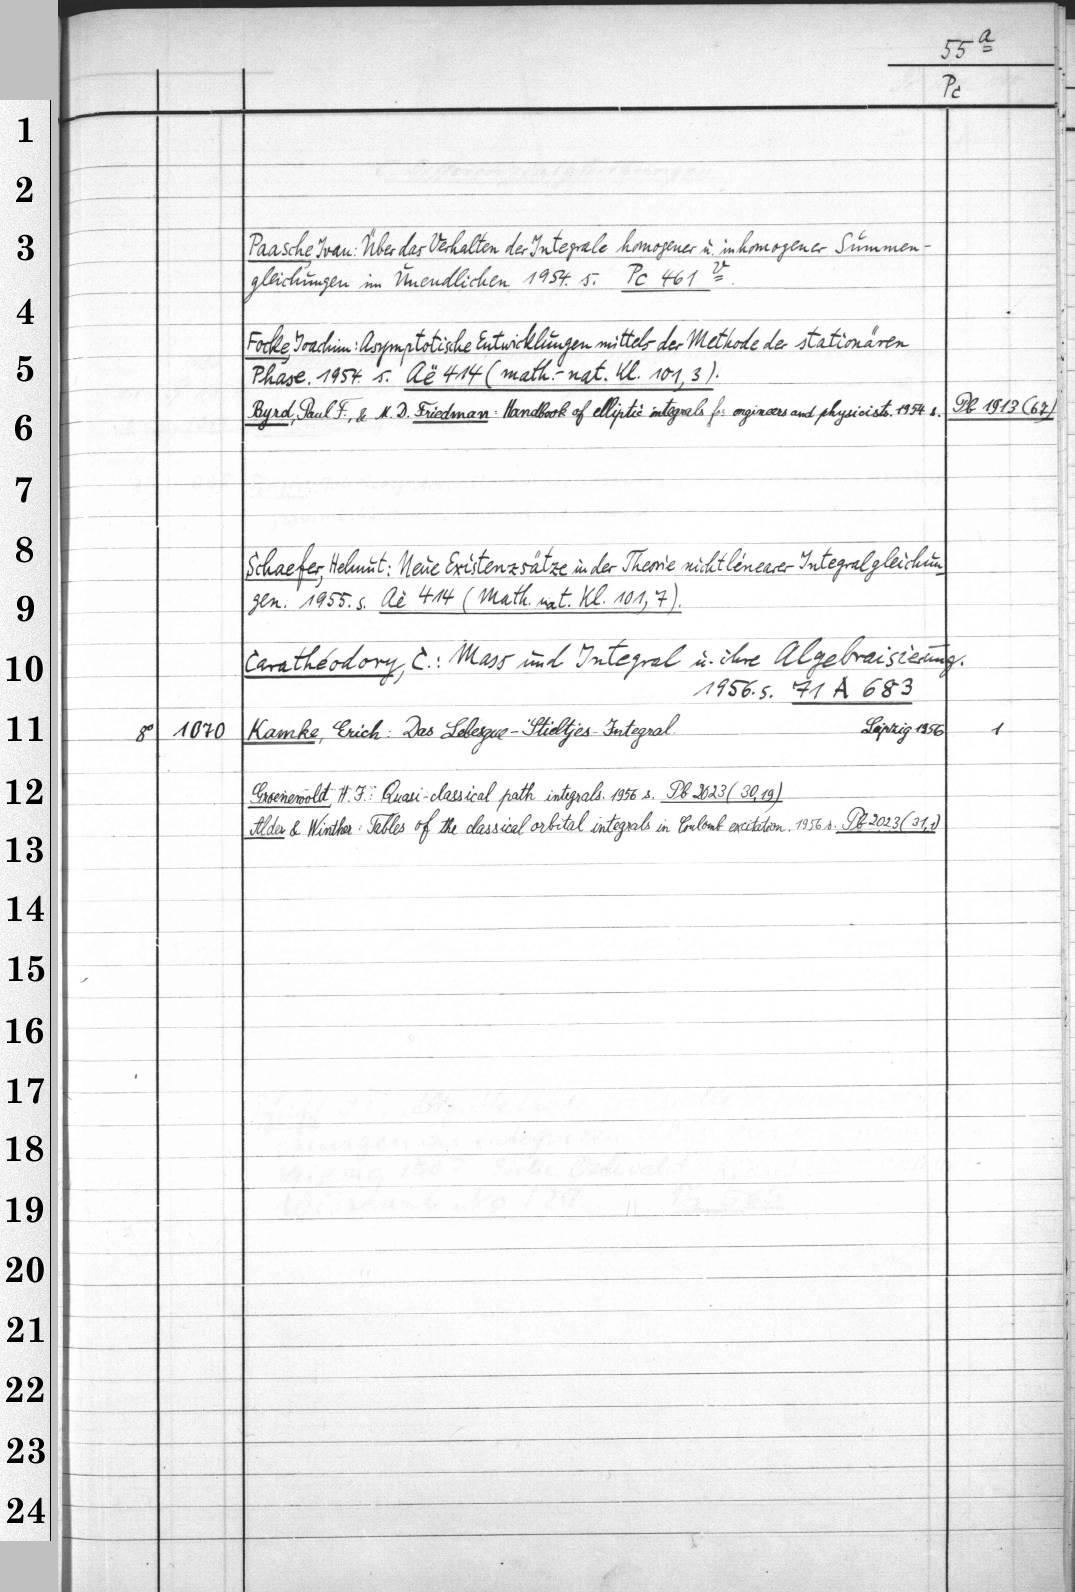 55 a
Pc
1
2
3
Paasche, Ivan: Über das Verhalten der Integrale homogener u. inhomogener Summen-
gleichungen im Unendlichen 1954. s. Pc 461 v.
4
Focke, Joachim: Asymptotische Entwicklungen mittels der Methode der stationären
5
Phase. 1954. s. Aë 414 (math.-nat. Kl. 101,3).
Byrd, Paul F., & M. D. Friedman: Handbook of elliptic integrals for engineers and physicists. 1954 s. Pb 1913 (67)
6
7
8
Schaefer, Helmut: Neue Existenzsätze in der Theorie nichtlinearer Integralgleichun-
9
gen. 1955. s. Aë 414 (Math. nat. Kl. 101,7).
10
Carathéodory, C.: Mass und Integral u. ihre Algebraisierung.
1956. s. 71 A 683
11
8° 1070 Kamke, Erich: Das Lebesgue-Stieltjes-Integral. Leipzig 1956 1
12
Groenewold, H. J.: Quasi-classical path integrals. 1956 s. Pb 2023 (30,19)
Alder & Winther: Tables of the classical orbital integrals in Coulomb excitation. 1956 s. Pb 2023 (31,1)
13
14
15
16
17
18
19
20
21
22
23
24